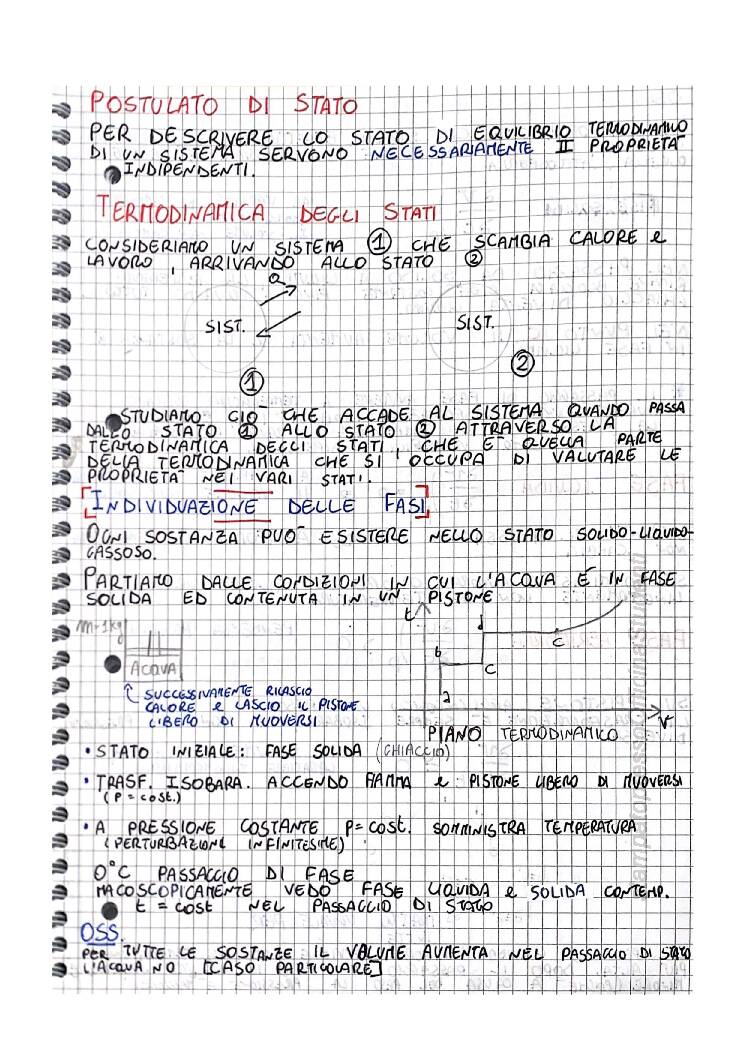 POSTULATO DI STATO
PER DESCRIVERE LO STATO DI EQUILIBRIO TERMODINAMICO
DI UN SISTEMA SERVONO NECESSARIAMENTE II PROPRIETA'
INDIPENDENTI.
TERMODINAMICA DEGLI STATI
CONSIDERIAMO UN SISTEMA ① CHE SCAMBIA CALORE e
LAVORO, ARRIVANDO ALLO STATO ②
Q
SIST. SIST.
① ②
STUDIAMO CIO' CHE ACCADE AL SISTEMA QUANDO PASSA
DALLO STATO ① ALLO STATO ② ATTRAVERSO LA
TERMODINAMICA DEGLI STATI, CHE E' QUELLA PARTE
DELLA TERMODINAMICA CHE SI OCCUPA DI VALUTARE LE
PROPRIETA' NEI VARI STATI.
[INDIVIDUAZIONE DELLE FASI]
OGNI SOSTANZA PUO' ESISTERE NELLO STATO SOLIDO-LIQUIDO-
GASSOSO.
PARTIAMO DALLE CONDIZIONI IN CUI L'ACQUA É IN FASE
SOLIDA ED CONTENUTA IN UN PISTONE
m=1kg
ACQUA
t
d
c
b
C
a
V
SUCCESSIVAMENTE RILASCIO
CALORE e LASCIO IL PISTONE
LIBERO DI MUOVERSI
PIANO TERMODINAMICO
• STATO INIZIALE: FASE SOLIDA (GHIACCIO)
• TRASF. ISOBARA. ACCENDO FIAMMA e PISTONE LIBERO DI MUOVERSI
(P = cost.)
• A PRESSIONE COSTANTE P=cost. SOMMINISTRA TEMPERATURA
(PERTURBAZIONI INFINITESIME)
0°C PASSAGGIO DI FASE
MACOSCOPICAMENTE VEDO FASE LIQUIDA e SOLIDA CONTEMP.
t = cost NEL PASSAGGIO DI STATO
OSS.
PER TUTTE LE SOSTANZE IL VOLUME AUMENTA NEL PASSAGGIO DI STATO
L'ACQUA NO [CASO PARTICOLARE]